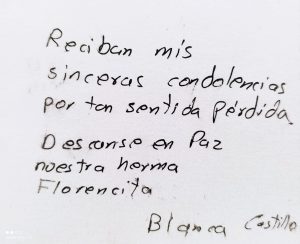 Reciban mis
sinceras condolencias
por tan sentida Pérdida
Descanse en Paz
nuestra herma
Florencita
Blanca Castillo